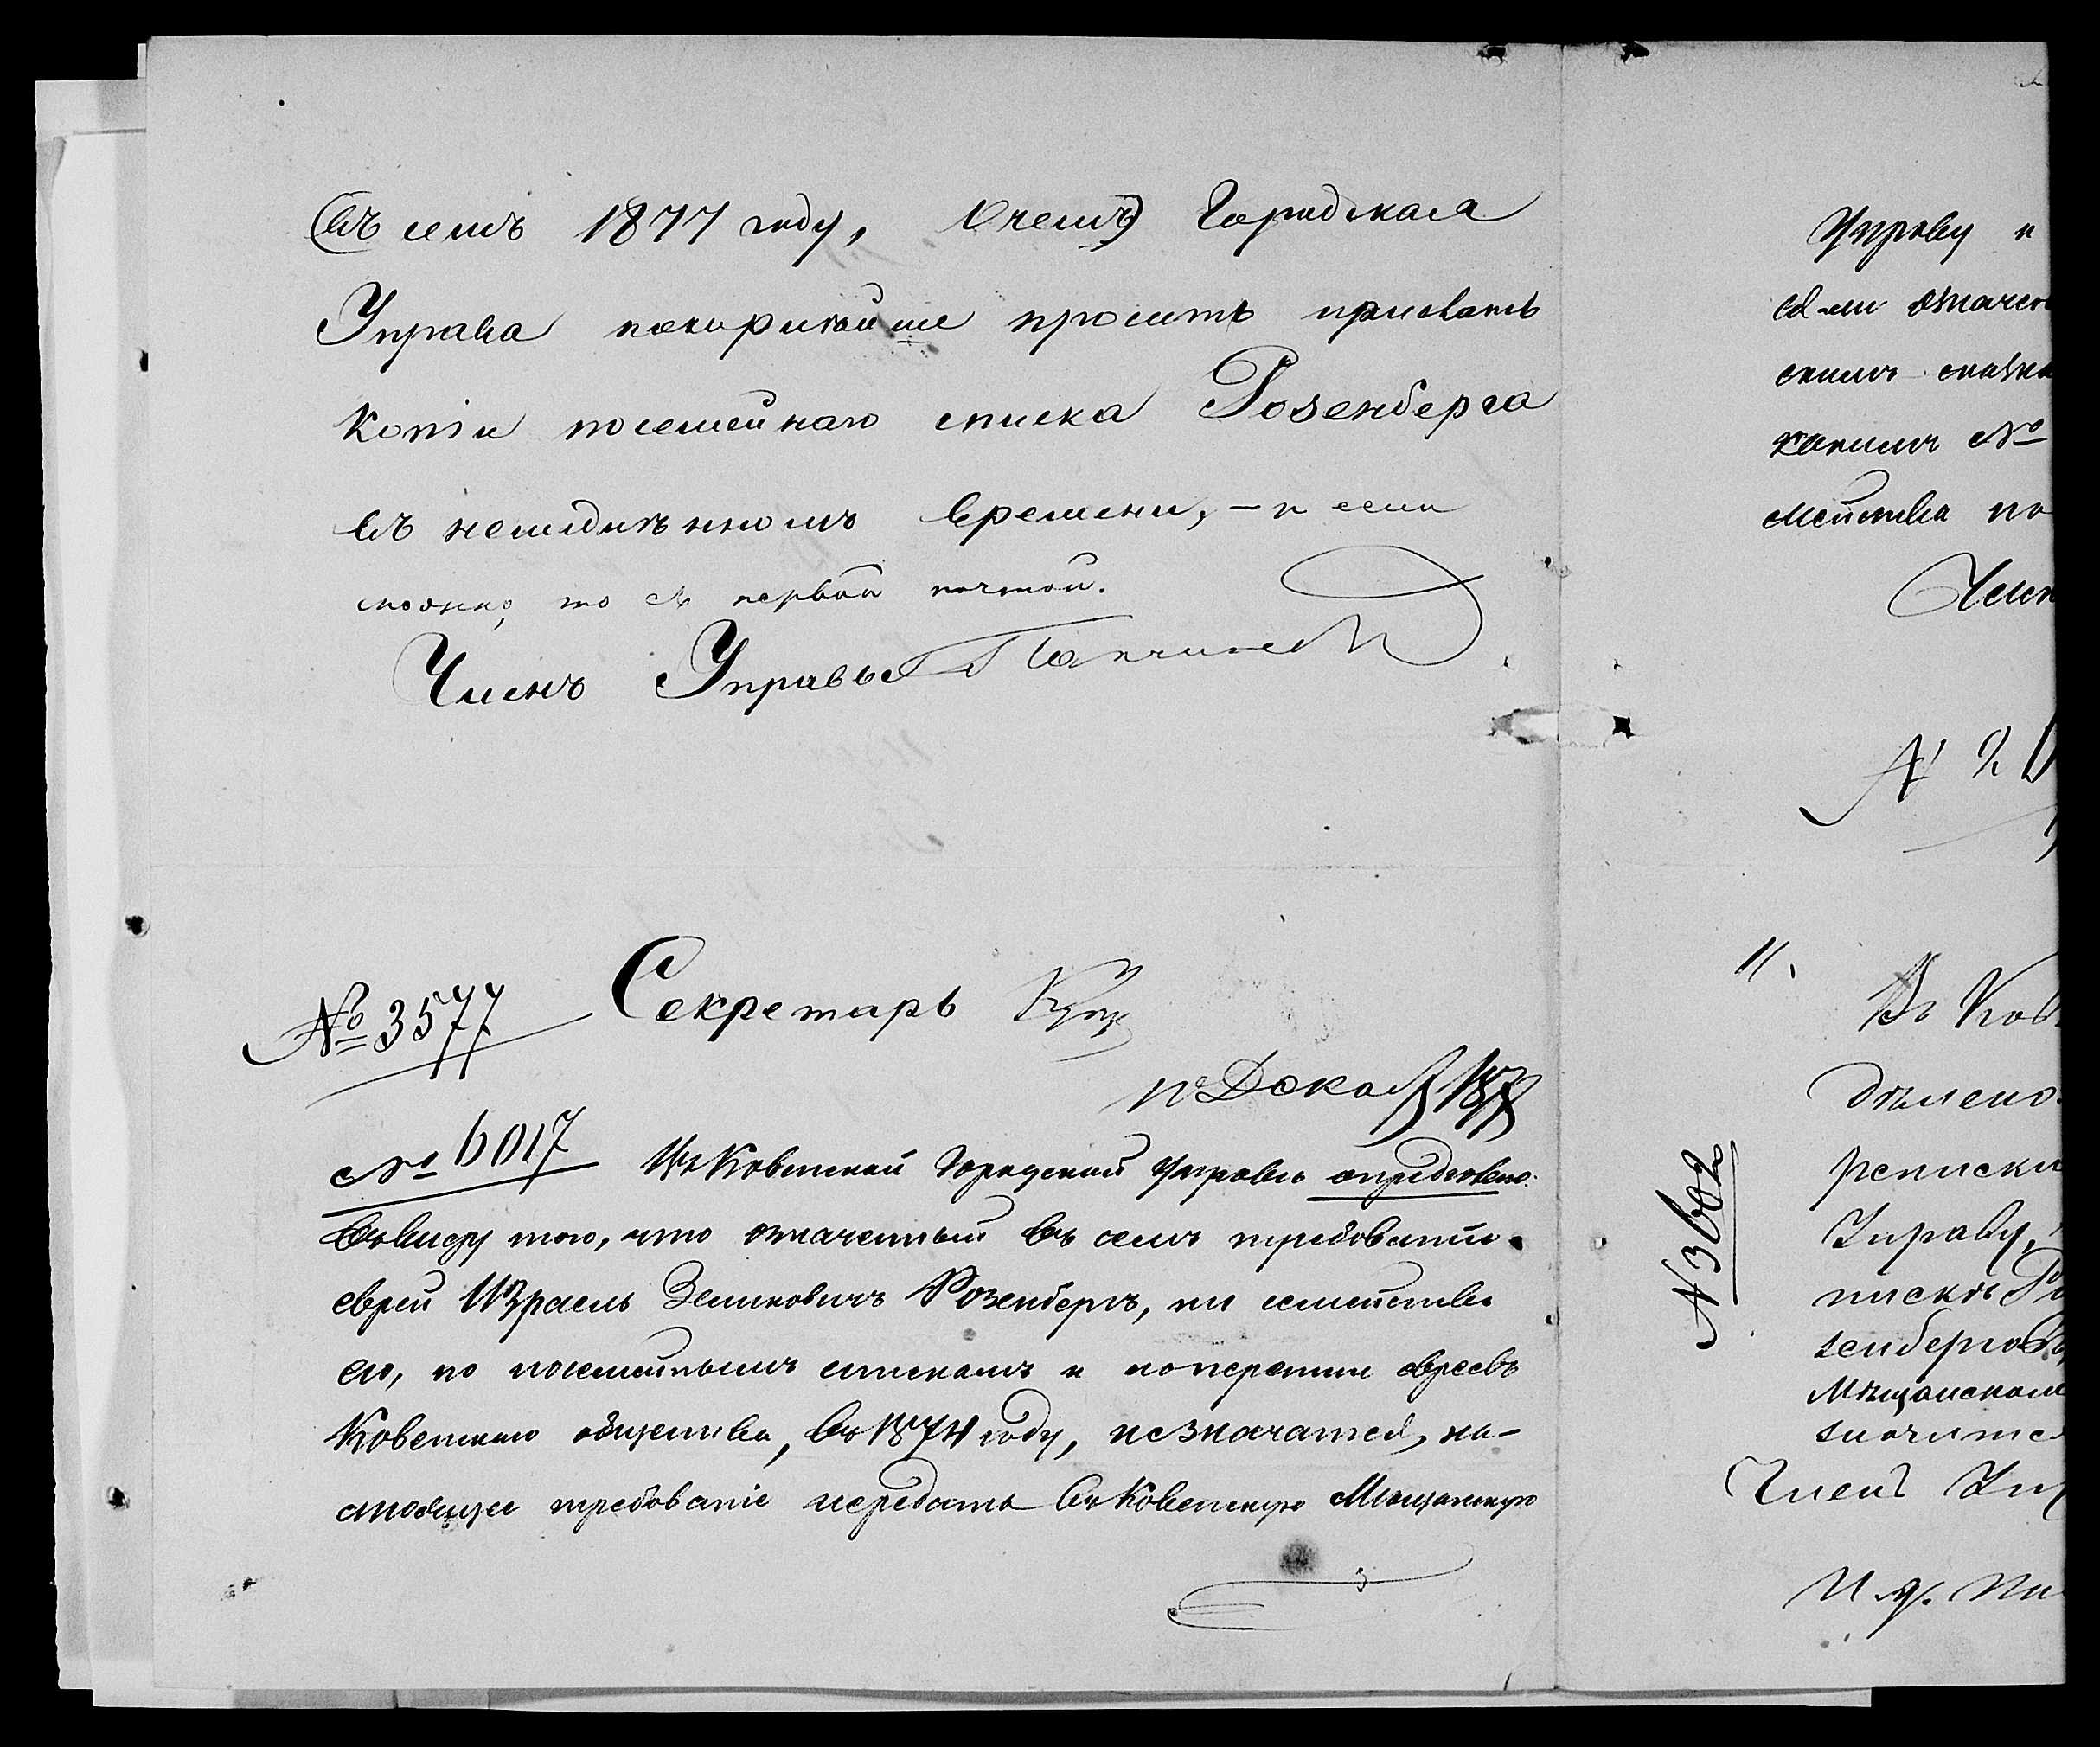 (въ семъ 1877 году, о чемъ) Городская
Управа покорнѣйше проситъ прислать
копіи посемейнаго списка Розенберга
въ немедлѣнномъ времени, – и если
можно, то съ первой почтой.
Членъ Управы
Секретарь
№ 3577
№ 6017 Въ Ковенской Городской Управѣ опредѣлено:
Въ виду того, что означенный въ семъ требованіи
еврей Израель Зелиновичъ Розенбергъ, ни семейства
его, по посемейнымъ спискамъ и по переписи евреевъ
Ковенскаго общества, въ 1874 году, не значатся, на-
стоящее требованіе передать въ Ковенскую Мѣщанскую
Управу и
ся-ли означен
скимъ сказка
какимъ №
мейства по
Член
11.
Въ Ков
дѣлено
реписки
Управу,
пискѣ Ро
зенбергов
Мѣщанском
значится
Членъ Уп
И. д.
№ 3602